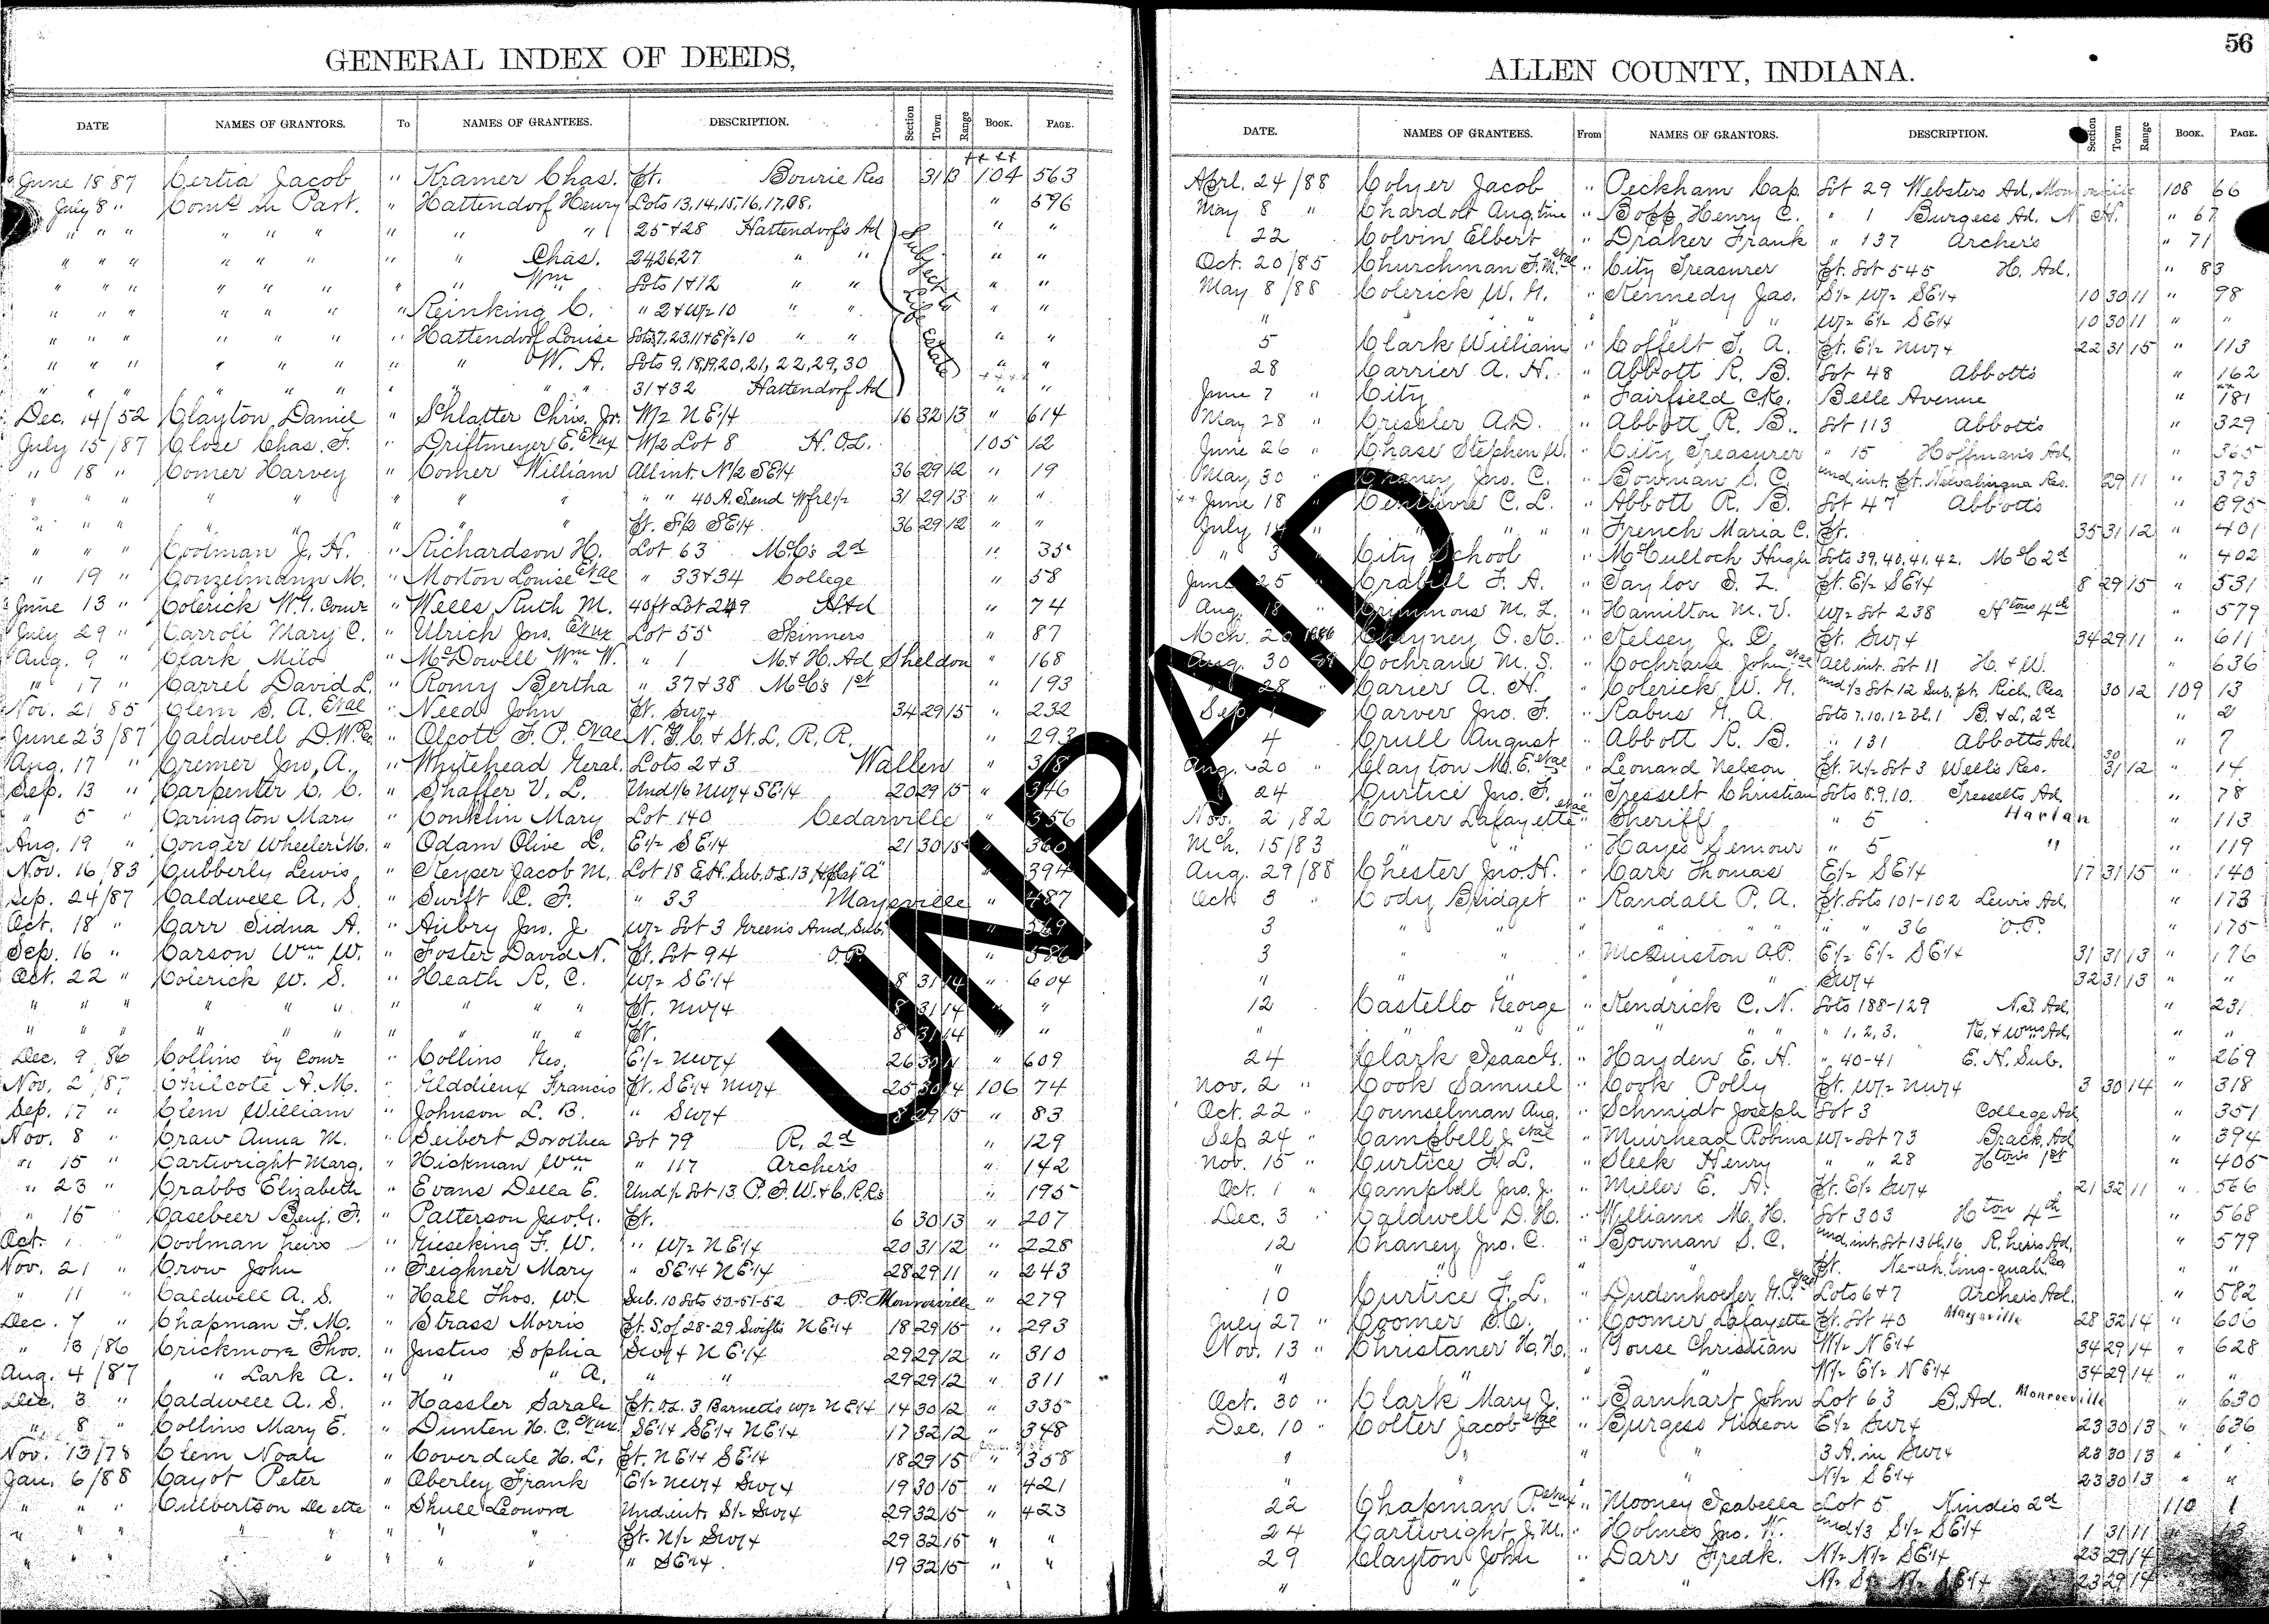 GENERAL INDEX OF DEEDS,
DATE NAMES OF GRANTORS. To NAMES OF GRANTEES. DESCRIPTION. Section Town Range BOOK. PAGE.
June 18 87 Certia Jacob " Kramer Chas. Pt. Bourie Res 31 13 104 563
July 8 " Com's in Part. " Hattendorf Henry Lots 13,14,15,16,17,08. " 596
" " " " " " " " " 25+28 Hattendorf's Ad " "
" " " " " " " " Chas. 24,26,27 " " " "
" " " " " " " " Wm Lots 1+12 " " " "
" " " " " " " Reinking C. " 2+W/2 10 " " " "
" " " " " " " Hattendorf Louise Lots 7,23,11+E1/2 10 " " " "
" " " " " " " " W. A. Lots 9,18,19,20,21,22,29,30 " "
" " " " " " " " " 31+32 Hattendorf Ad " "
Subject to Life Estate
Dec. 14/52 Clayton Daniel " Shlatter Chris. Jr. W/2 NE1/4 16 32 13 " 614
July 15/87 Close Chas. F. " Driftmeyer E. Etux W/2 Lot 8 H.O.L. 105 12
" 18 " Comer Harvey " Comer William All int. N1/2 SE1/4 36 29 12 " 19
" " " " " " " " " " 40 A. S.end Wfrl1/2 31 29 13 " "
" " " " " " " " Pt. S1/2 SE1/4 36 29 12 " "
" " " Coolman J. H. " Richardson H. Lot 63 McC's 2d " 35
" 19 " Conzelmann M. " Morton Louise Etal " 33+34 College " 58
June 13 " Colerick W.G. Comr " Wells Ruth M. 40ft Lot 249 H Ad " 74
July 29 " Carroll Mary C. " Ulrich Jno. Etux Lot 55 Skinners " 87
Aug. 9 " Clark Milo " McDowell Wm W. " 1 M.+H. Ad Sheldon " 168
" 17 " Carrel David L. " Romy Bertha " 37+38 McC's 1st " 193
Nov. 21 85 Clem S. A. Etal " Need John Pt. SW1/4 34 29 15 " 232
June 23/87 Caldwell D.W. " Olcott F. P. Etal N.Y.C.+St.L. R.R. " 293
Aug. 17 " Cremer Jno. A. " Whitehead Geral. Lots 2+3 Wallen " 318
Sep. 13 " Carpenter C. C. " Shaffer V. L. Und1/6 NW1/4 SE1/4 20 29 15 " 346
" 5 " Carington Mary " Conklin Mary Lot 140 Cedarville " 356
Aug. 19 " Conger Wheeler M. " Odam Olive L. E1/2 SE1/4 21 30 15 " 360
Nov. 16/83 Cubberly Lewis " Keyser Jacob M. Lot 18 E.H. Sub. O.L. 13 " 394
Sep. 24/87 Caldwell A. S. " Swift C. F. " 33 Maysville " 487
Oct. 18 " Carr Sidna A. " Aubry Jno. J. W/2 Lot 3 Green's Amd. Sub. " 569
Sep. 16 " Carson Wm W. " Foster David N. Pt. Lot 94 O.P. " 586
Oct. 22 " Colerick W. S. " Heath R. C. W/2 SE1/4 8 31 14 " 604
" " " " " " " " " " Pt. NW1/4 8 31 14 " "
" " " " " " " " " " Pt. 8 31 14 " "
Dec. 9 86 Collins by Comr " Collins Geo. E1/2 NW1/4 26 30 11 " 609
Nov. 2/87 Chilcote A. M. " Glddieux Francis Pt. SE1/4 NW1/4 25 30 14 106 74
Sep. 17 " Clem William " Johnson L. B. " SW1/4 8 29 15 " 83
Nov. 8 " Craw Anna M. " Seibert Dorothea Lot 79 R. 2d " 129
" 15 " Cartwright Marg. " Hickman Wm " 117 Archers " 142
" 23 " Crabbs Elizabeth " Evans Della E. Und1/2 Lot 13 P.F.W.+C.R.Rs " 195
" 15 " Casebeer Benj. F. " Patterson Jacob. Pt. 6 30 13 " 207
Oct. 1 " Coolman heirs " Gieseking F. W. " W/2 NE1/4 20 31 12 " 228
Nov. 21 " Crow John " Feighner Mary " SE1/4 NE1/4 28 29 11 " 243
" 11 " Caldwell A. S. " Hall Thos. W. Sub. 10 Lots 50-51-52 O.P. Monroeville " 279
Dec. 7 " Chapman F. M. " Strass Morris Pt. S.of 28-29 Swifts NE1/4 18 29 15 " 293
" 13/86 Crickmore Thos. " Justus Sophia SW1/4 NE1/4 29 29 12 " 310
Aug. 4/87 " Lark A. " " A. " " 29 29 12 " 311
Dec. 3 " Caldwell A. S. " Hassler Sarah Pt. O.L. 3 Barnett's W/2 NE1/4 14 30 12 " 335
" 8 " Collins Mary E. " Dunten H. C. Etux SE1/4 SE1/4 NE1/4 17 32 12 " 348
Nov. 13/78 Clem Noah " Coverdale H. L. Pt. NE1/4 SE1/4 18 29 15 " 358
Jan. 6/88 Cayot Peter " Oberley Frank E1/2 NW1/4 SW1/4 19 30 15 " 421
" " " Culbertson De ette " Shull Leonora Und.int. S1/2 SW1/4 29 32 15 " 423
" " " " " " " Pt. N1/2 SW1/4 29 32 15 " "
" " " " " " " " SE1/4 19 32 15 " "
56
ALLEN COUNTY, INDIANA.
DATE. NAMES OF GRANTEES. From NAMES OF GRANTORS. DESCRIPTION. Section Town Range BOOK. PAGE.
Aprl. 24/88 Colyer Jacob " Peckham Cap. Lot 29 Websters Ad, Monroeville 108 66
May 8 " Chardolt Augtine " Bopp Henry C. " 1 Burgess Ad. N.H. " 67
22 Colvin Elbert " Draker Frank " 137 Archer's " 71
Oct. 20/85 Churchman F. M. etal " City Treasurer Pt. Lot 545 H. Ad. " 83
May 8/88 Colerick W. G. " Kennedy Jas. S1/2 W/2 SE1/4 10 30 11 " 98
" " " W/2 E1/2 SE1/4 10 30 11 " "
5 Clark William " Coffelt T. A. Pt. E1/2 NW1/4 22 31 15 " 113
28 Carrier A. H. " Abbott R. B. Lot 48 Abbott's " 162
June 7 " City " Fairfield C. Belle Avenue " 181
May 28 " Cressler A.D. " Abbott R. B. Lot 113 Abbott's " 329
June 26 " Chase Stephen W. " City Treasurer " 15 Hoffman's Ad. " 365
May 30 " Chaney Jno. C. " Bowman S. C. und.int. Pt. Nelvalingua Res. 29 11 " 373
June 18 " Centlivre C. L. " Abbott R. B. Lot 47 Abbott's " 395
July 14 " " " " " French Maria C. Pt. 35 31 12 " 401
" 3 " City School " McCulloch Hugh Lots 39,40,41,42. McC 2d " 402
June 25 " Crabill F. A. " Taylor S. L. Pt. E1/2 SE1/4 8 29 15 " 531
Aug. 18 " Crimmons M. L. " Hamilton M. V. W/2 Lot 238 Htons 4th " 579
Mch. 20 1886 Cheyney O. K. " Kelsey J. D. Pt. SW1/4 34 29 11 " 611
Aug. 30 88 Cochrane M. S. " Cochrane John etal All int. Lot 11 H.+W. " 636
" 28 " Carier A. H. " Colerick W. G. und1/3 Lot 12 Sub. pt. Rich. Res. 30 12 109 13
Sep. 1 " Carver Jno. F. " Rabus G. A. Lots 7.10.12 Bl.1 B.+L. 2d " 2
4 Crull August " Abbott R. B. " 131 Abbotts Ad. " 7
Aug. 20 " Clayton M. E. etal " Leonard Nelson Pt. N/2 Lot 3 Wells Res. 30 31 12 " 14
24 Curtice Jno. F. " Tresselt Christian Lots 8.9.10. Tresselts Ad. " 78
Nov. 2/82 Comer Lafayette etal " Sheriff " 5 Harlan " 113
Mch. 15/83 " " Hayes Semour " 5 " " 119
Aug. 29/88 Chester Jno. H. " Carr Thomas E1/2 SE1/4 17 31 15 " 140
Oct 3 " Cody Bridget " Randall P. A. Pt. Lots 101-102 Lewis Ad. " 173
3 " " " " " " " " 36 O.P. " 175
3 " " " McQuiston A.P. E1/2 E1/2 SE1/4 31 31 13 " 176
" " " " " SW1/4 32 31 13 " "
12 Castello George " Kendrick C. N. Lots 188-129 N.S. Ad. " 231
" " " " " " " " 1,2,3. K.+Wms Ad. " "
24 Clark Isaac G. " Hayden E. H. " 40-41 E.H. Sub. " 269
Nov. 2 " Cook Samuel " Cook Polly Pt. W/2 NW1/4 3 30 14 " 318
Oct. 22 " Counselman Aug. " Schmidt Joseph Lot 3 College Ad " 351
Sep 24 " Campbell J. etal " Muirhead Robina W/2 Lot 73 Brack. Ad " 394
Nov. 15 " Curtice F. L. " Sleek Henry " " 28 Htons 1st " 405
Oct. 1 " Campbell Jno. J. " Miller E. A. Pt. E1/2 SW1/4 21 32 11 " 566
Dec. 3 " Caldwell D. H. " Williams M. H. Lot 303 Hton 4th " 568
12 Chaney Jno. C. " Bowman S. C. und.int. Lot 13 Bl.16 R. heirs Ad. " 579
" " " " Pt. Ne-ah-ling-quah Res " "
10 Curtice F. L. " Dudenhoefer G.P. etal Lots 6+7 Archers Ad. " 582
July 27 " Coomer " Coomer Lafayette Pt. Lot 40 Maysville 28 32 14 " 606
Nov. 13 " Christaner H. H. " Gouse Christian W/2 NE1/4 34 29 14 " 628
" " " W/2 E1/2 NE1/4 34 29 14 " "
Oct. 30 " Clark Mary J. " Barnhart John Lot 63 B. Ad. Monroeville " 630
Dec. 10 " Colter Jacob etal " Burgess Gideon E1/2 SW1/4 23 30 13 " 636
" " " " 3 A. in SW1/4 23 30 13 " "
" " " " N/2 SE1/4 23 30 13 " "
22 Chapman P. etux " Mooney Isabella Lot 5 Ninde's 2d 110 1
24 Cartwright J. M. " Holmes Jno. W. und1/3 S1/2 SE1/4 1 31 11 " 13
29 Clayton John " Darr Fredk. N/2 N/2 SE1/4 23 29 14
" " " N/2 S1/2 N/2 SE1/4 23 29 14
UNPAID